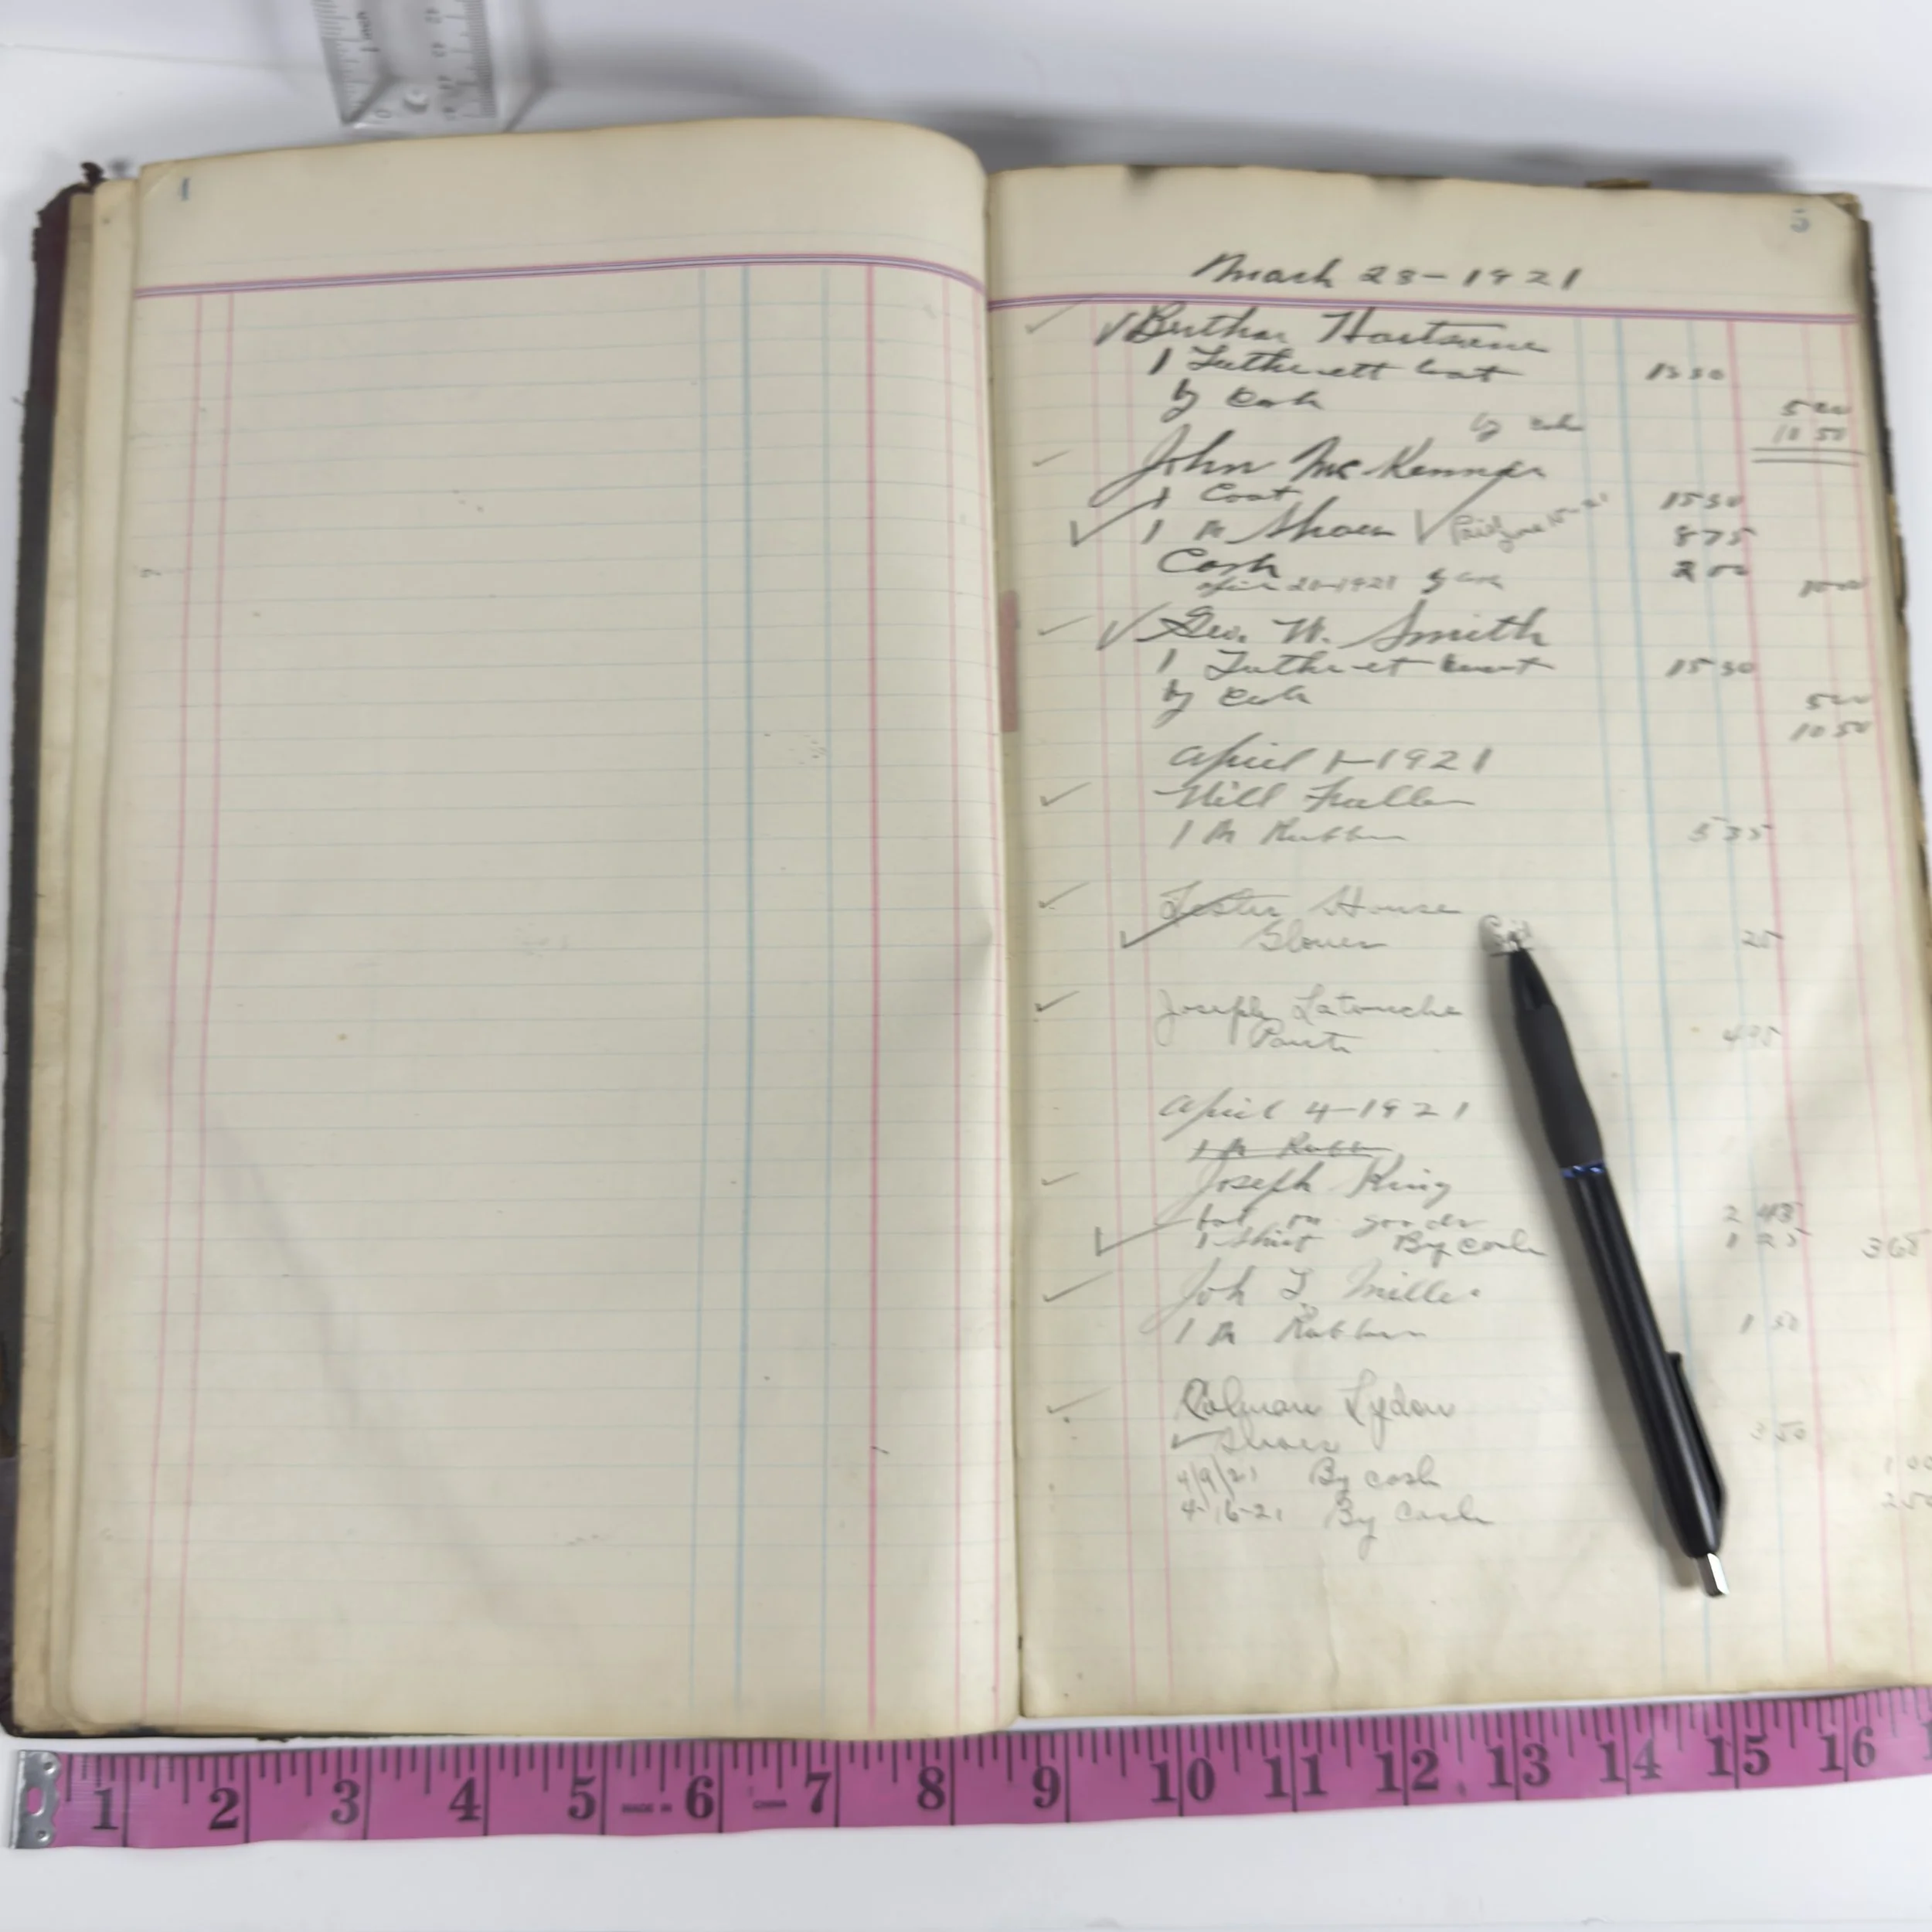 1
5
March 28-1921
Bertha
1 coat 15 50
by cash 5 00
by cash 10 50
John McKenna
1 Coat 15 50
1 Pr Shoes Paid June 15-21 8 75
Cash 2 00
April 20-1921 by cash 10 00
Geo. W. Smith
1 15 50
by cash 5 00
10 50
April 1-1921
Will Fuller
1 Pr Rubbers 5 35
Lester House Paid
Gloves 25
Joseph Latouche
Pants 4 95
April 4-1921
1 Pr Rubber
Joseph King
bal on goods 2 43
1 Shirt By cash 1 25 3 68
Joh T. Miller
1 Pr Rubbers 1 50
Lydon
Shoes 3 50
4/9/21 By cash 1 00
4-16-21 By Cash 2 50
1 2 3 4 5 MADE IN 6 CHINA 7 8 9 10 11 12 13 14 15 16